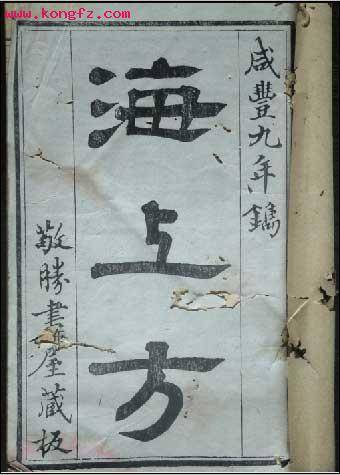 www.kongfz.com
咸豐九年鐫
海上方
敬勝書屋蔵板